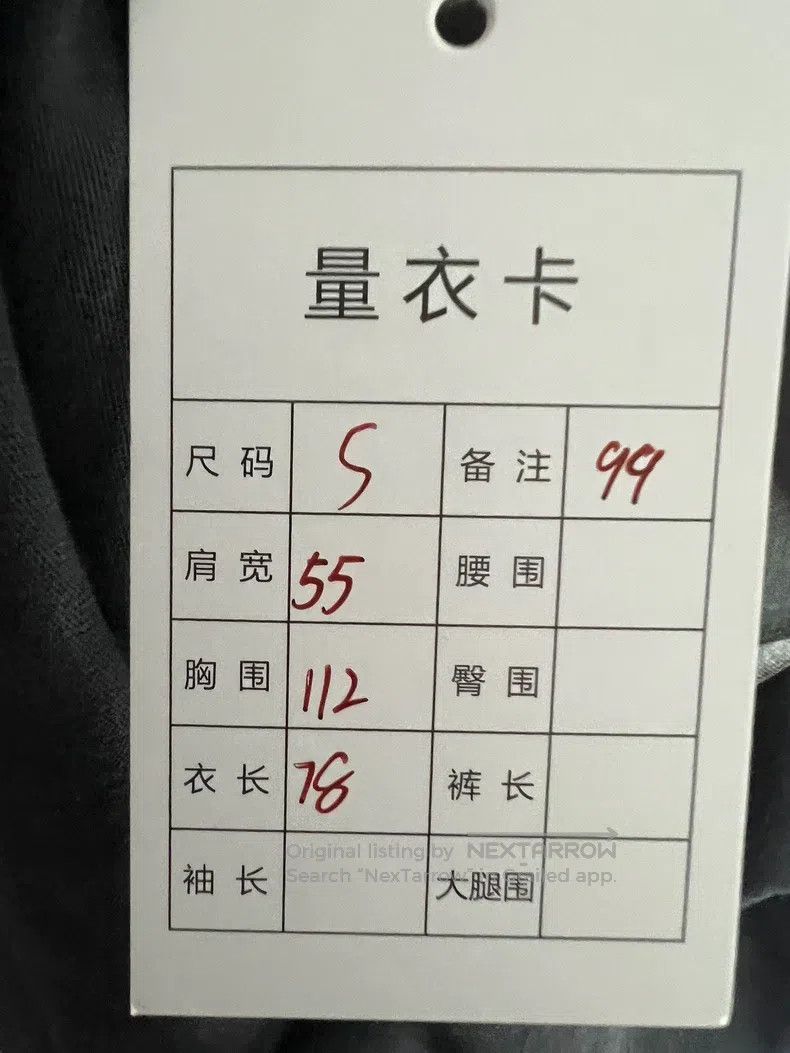 量衣卡
尺码 S 备注 99
肩宽 55 腰围
胸围 112 臀围
衣长 78 裤长
袖长 大腿围
Original listing by NEXTARROW
Search "NexTarrow" app.